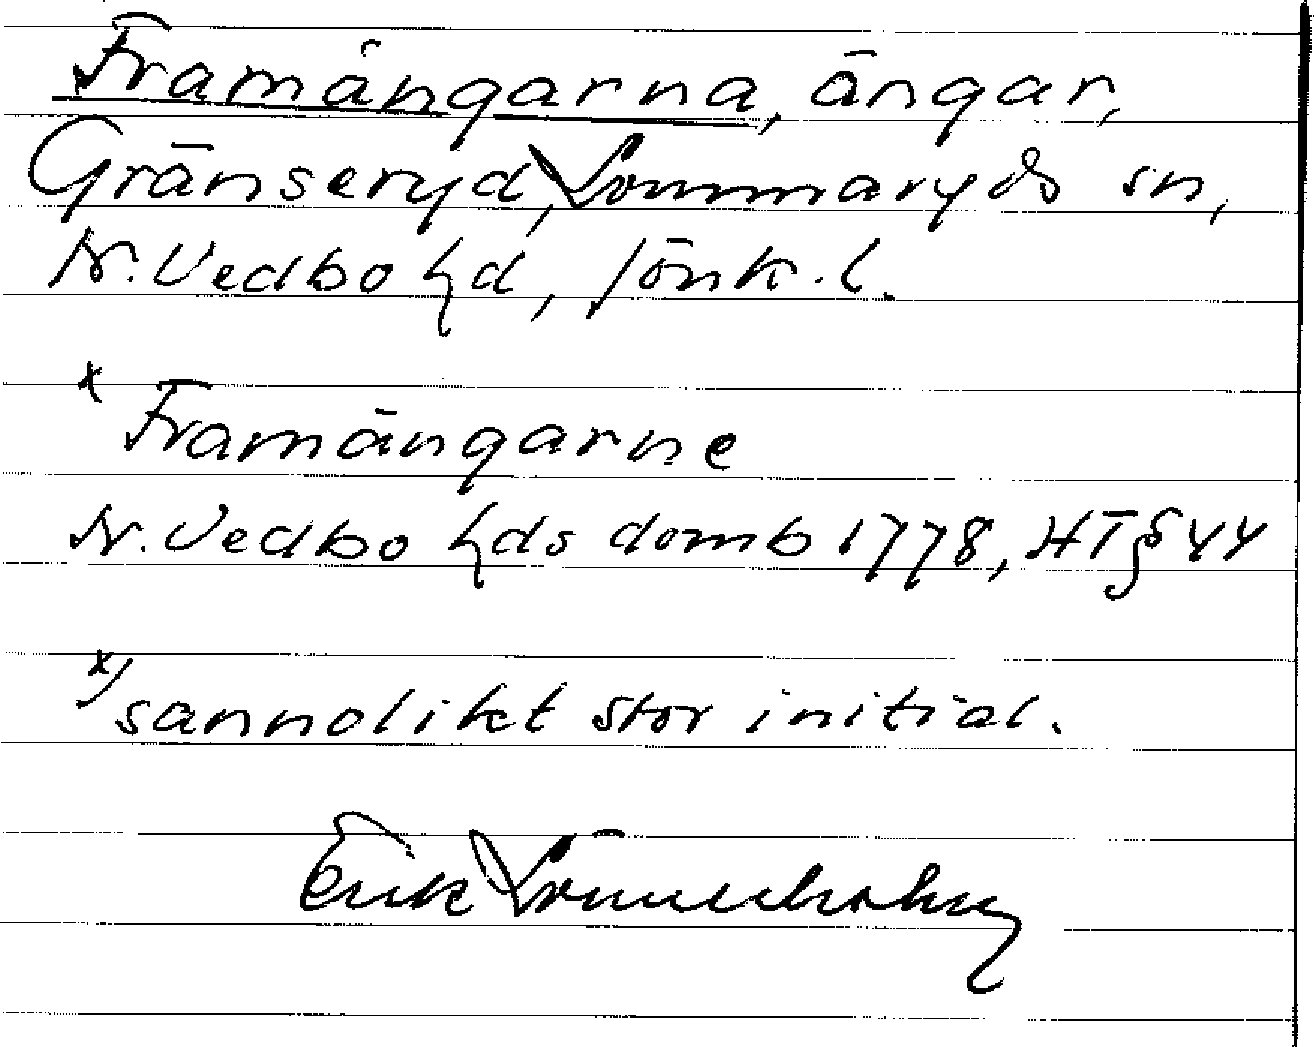 Framängarna, ängar,
Gränseryd, Lommaryds sn,
N. Vedbo hd, Jönk. l.
x Framängarne
N. Vedbo hds domb 1778, HT § 44
x) sannolikt stor initial.
Erik Lönnerholm